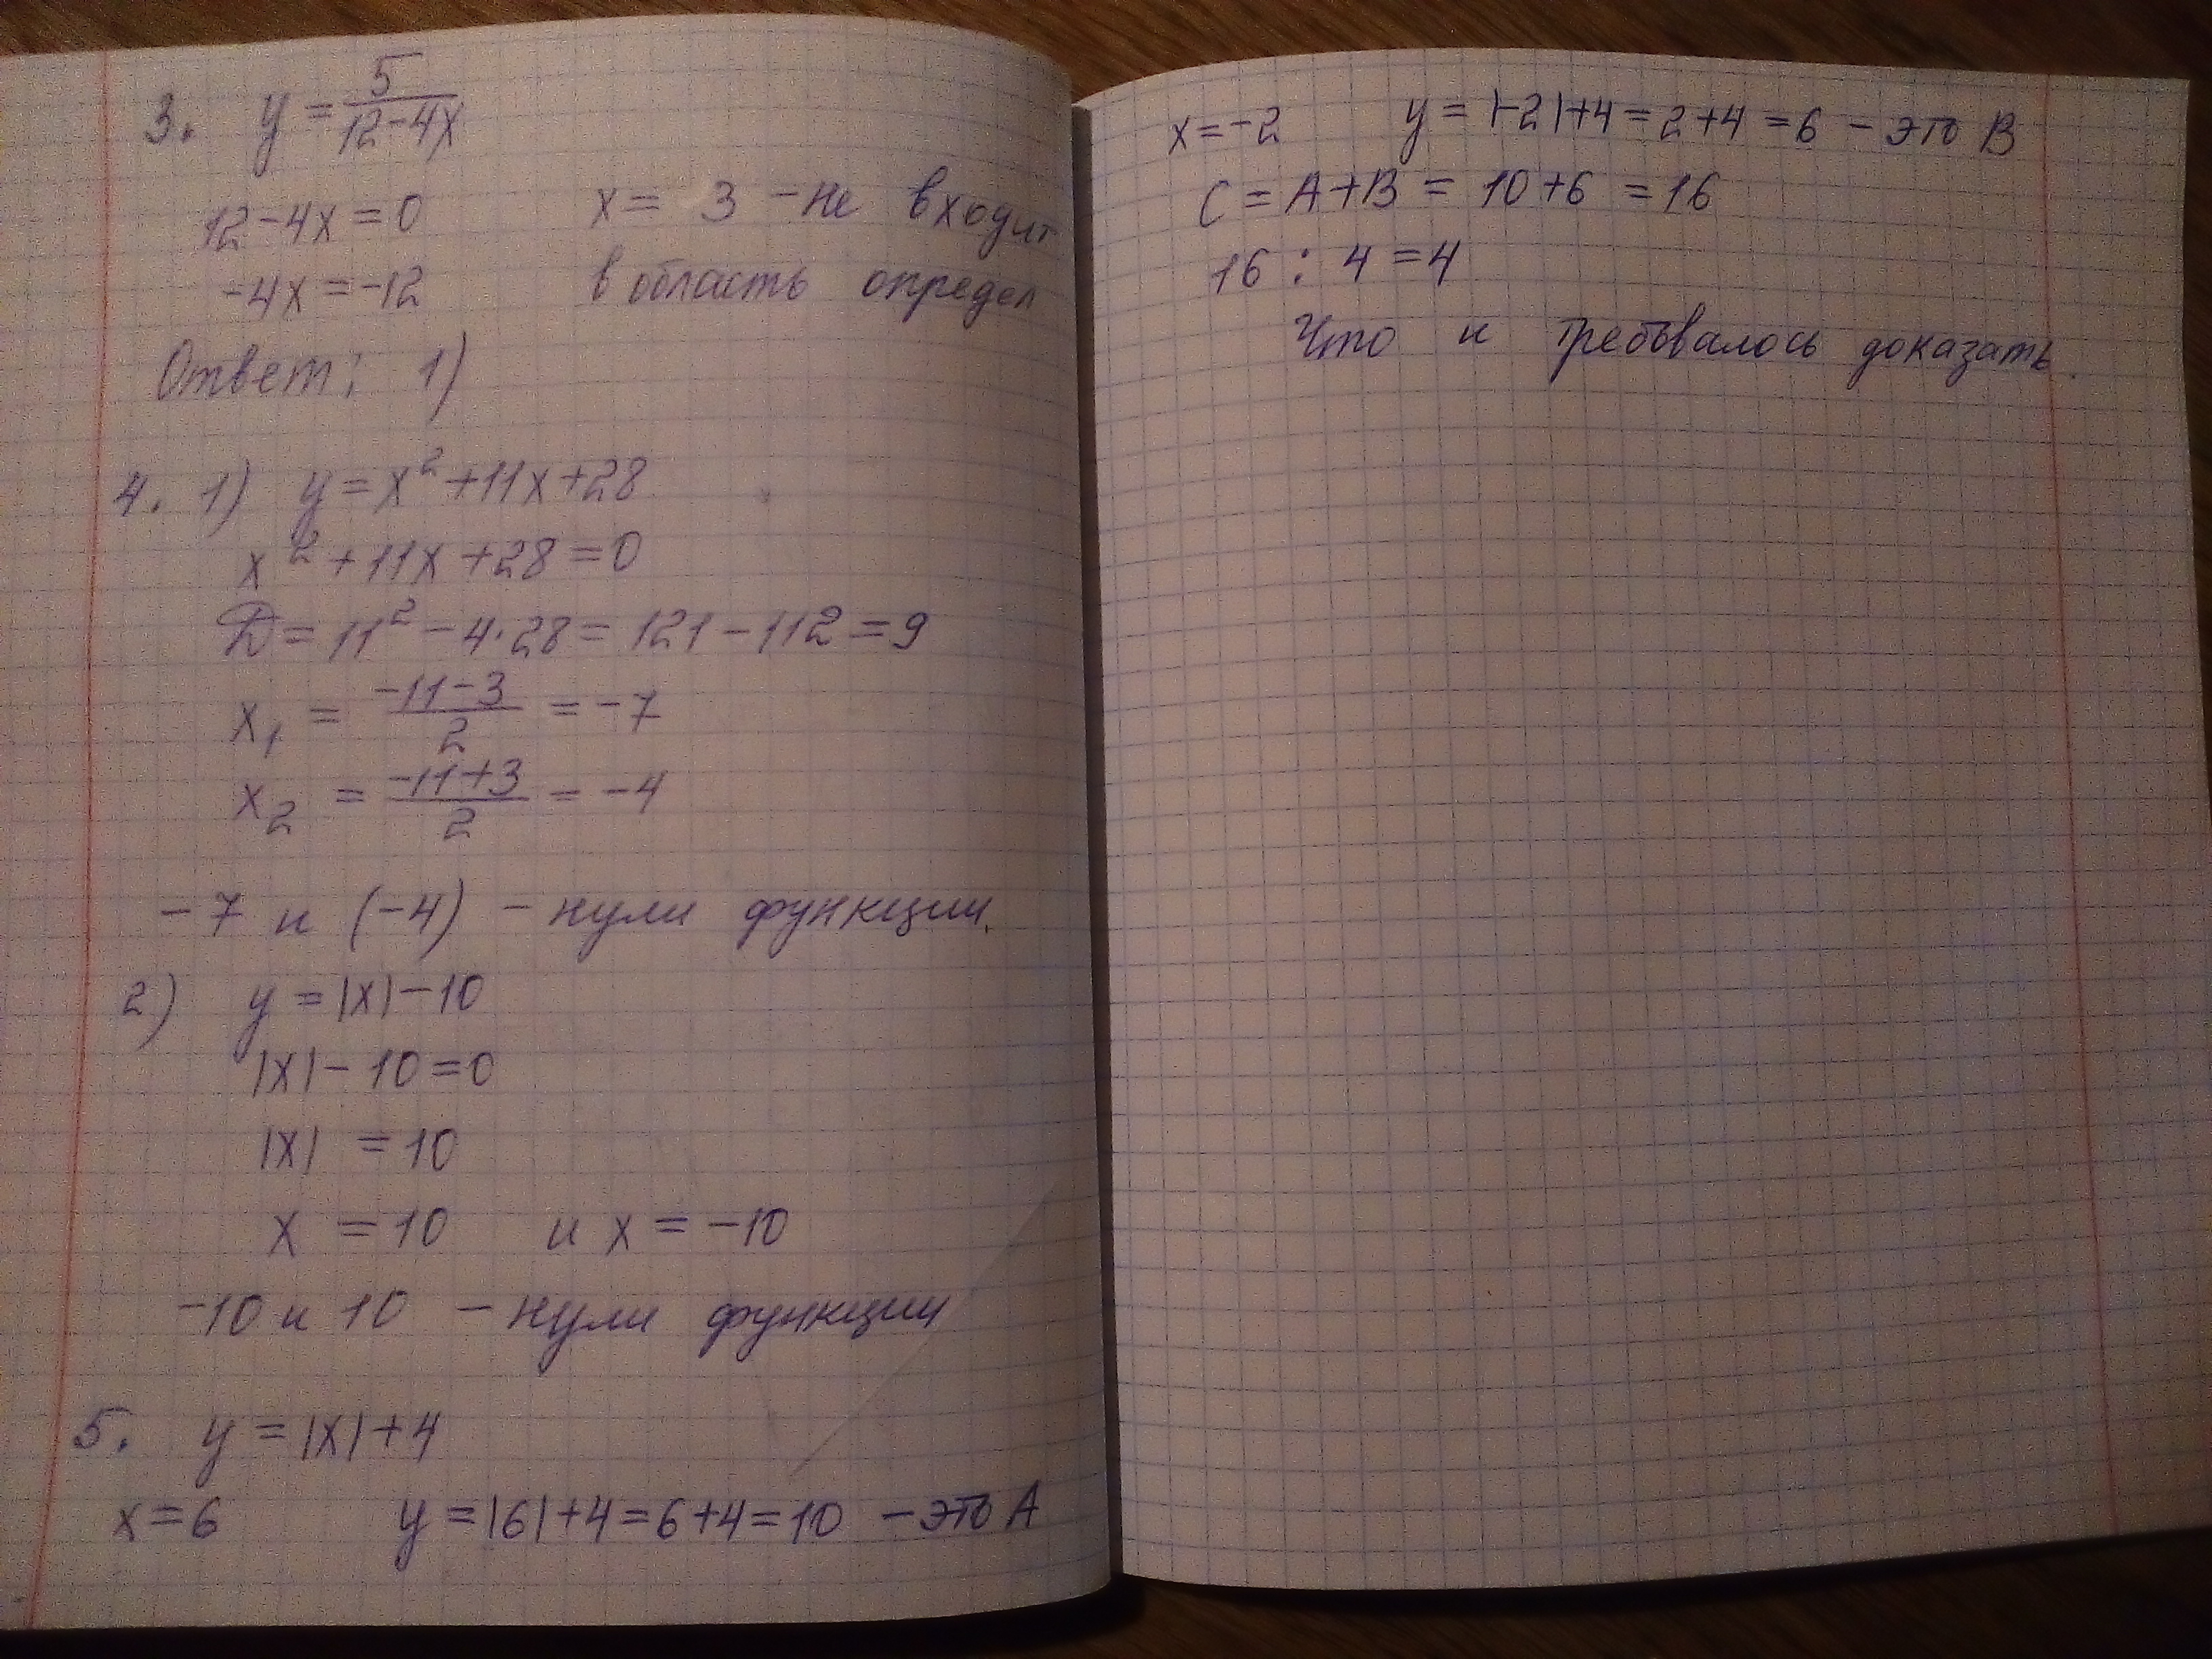 3. y = 5/(12-4x)
12-4x=0 x= 3 - не входит
-4x=-12 в область определ
Ответ: 1)
4. 1) y=x²+11x+28
x²+11x+28=0
D=11²-4·28=121-112=9
x₁ = (-11-3)/2 = -7
x₂ = (-11+3)/2 = -4
-7 и (-4) - нули функции.
2) y=|x|-10
|x|-10=0
|x| =10
x =10 и x=-10
-10 и 10 - нули функции
5. y=|x|+4
x=6 y=|6|+4=6+4=10 - это A
x=-2 y=|-2|+4=2+4=6 - это B
C=A+B= 10+6 =16
16 : 4 =4
Что и требовалось доказать.